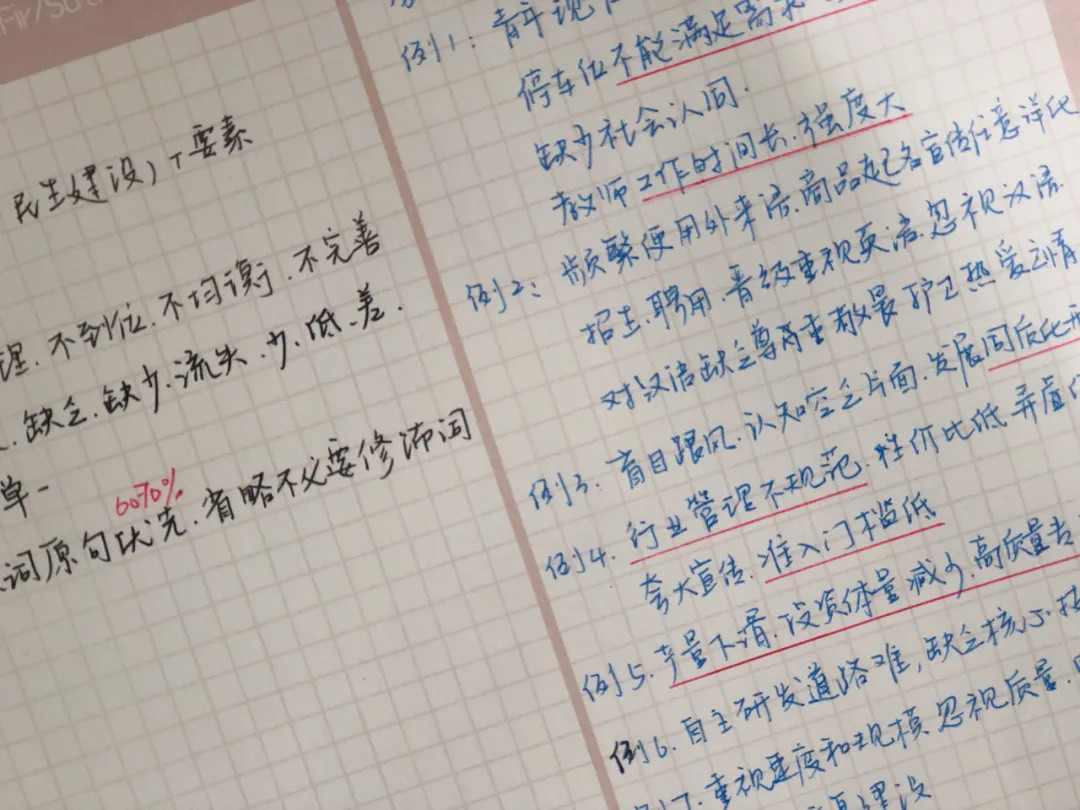 民生建设)个要素
理、不到位、不均衡、不完善
缺乏、缺少、流失、少、低、差.
单一
6070%
词原句优先、省略不必要修饰词
例1:青年
停车位不能满足需求
缺少社会认同.
教师工作时间长、强度大
例2:频繁使用外来语、商品起名宣传任意
招生、聘用、晋级重视英语、忽视汉语
对汉语缺乏尊重敬畏护卫热爱
例3、盲目跟风、认知空乏片面、发展同质化
例4、行业管理不规范、性价比低、弄虚
夸大宣传、准入门槛低
例5、产量下滑、投资体量减少、高质量
例6、自主研发道路难,缺乏核心
例7、重视速度和规模忽视质量、
建设